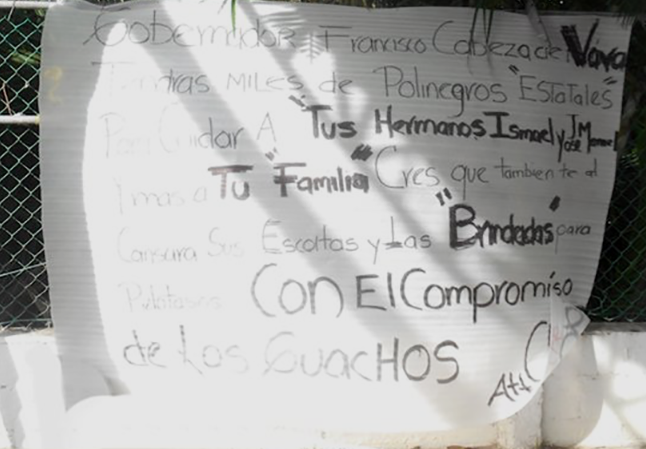 Gobernador Francisco Cabeza de Vaca
Tendras MILES de Polinegros "EstaTales"
Para Cuidar A "Tus Hermanos Ismael y José Manuel
Y mas a Tu "Familia" Cres que tambien te al
Cansara Sus Escoltas y Las "Blindadas" para
CON El Compromiso
de Los GUACHOS
Att